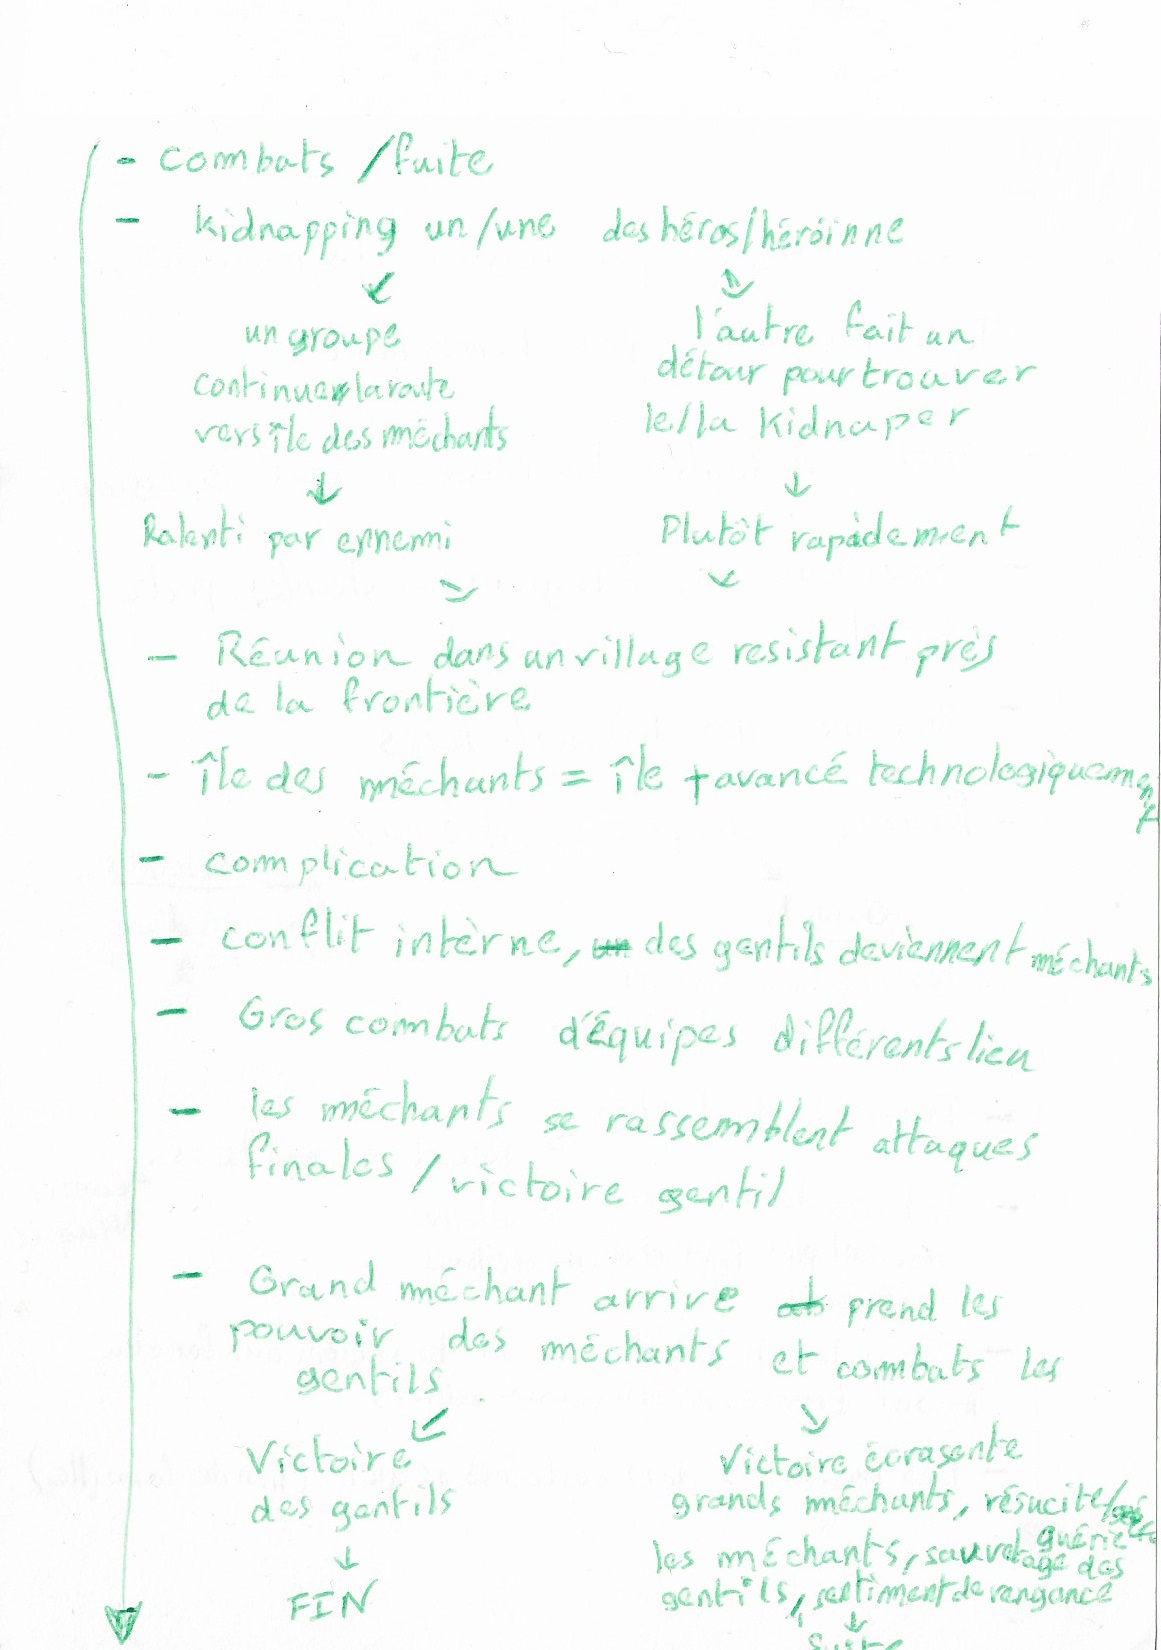 - combats /fuite
- kidnapping un/une des héros/héroinne
un groupe
continue la route
vers île des méchants
Ralenti par ennemi
l'autre fait un
détour pour trouver
le/la kidnaper
Plutôt rapidement
- Réunion dans un village resistant près
de la frontière
- île des méchants = île + avancé technologiquement
- complication
- conflit intèrne, des gentils deviennent méchants
- Gros combats d'équipes différents lieu
- les méchants se rassemblent attaques
finales / victoire gentil
- Grand méchant arrive prend les
pouvoir des méchants et combats les
gentils
Victoire
des gentils
FIN
Victoire écrasente
grands méchants, résucite/
guérie
les méchants, sauvetage des
gentils, sentiment de vengance